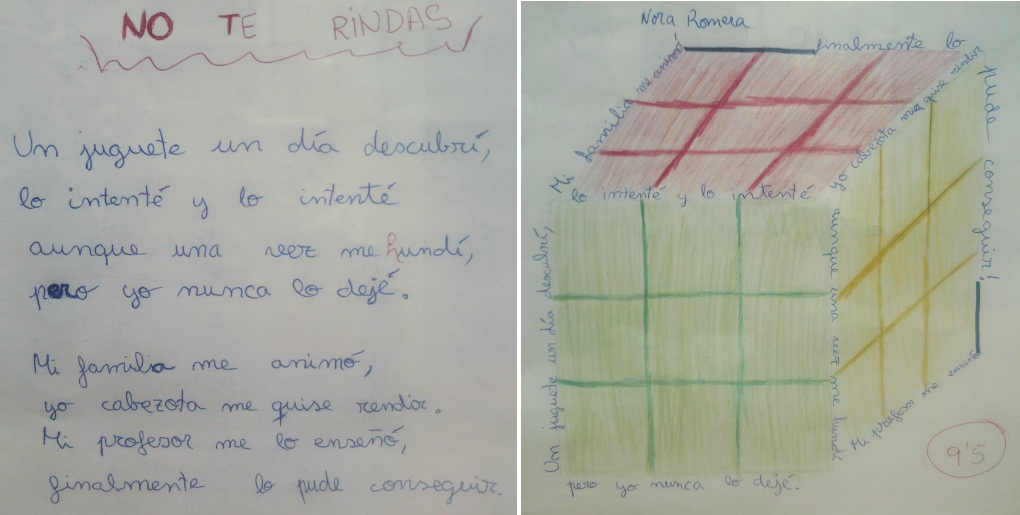 NO TE RINDAS
Un juguete un día descubrí,
lo intenté y lo intenté
aunque una veez me hundí,
pero yo nunca lo dejé.
Mi familia me animó,
yo cabezota me quise rendir.
Mi profesor me lo enseñó,
finalmente lo pude conseguir.
Nora Romera
Mi familia me animó
finalmente lo
pude conseguir!
lo intenté y lo intenté
yo cabezota me quise rendir
Un juguete un día descubrí,
aunque una veez me hundí
Mi profesor me enseñó
pero yo nunca lo dejé.
9'5